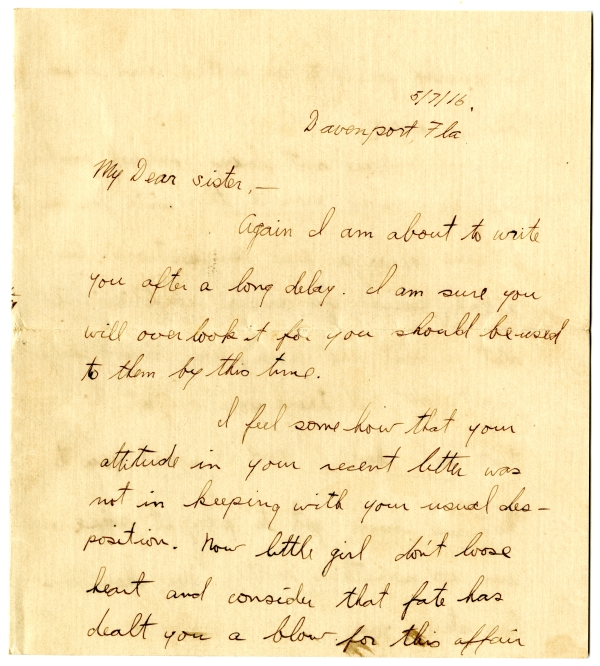 5/7/16.
Davenport, Fla
My Dear sister,—
Again I am about to write
you after a long delay. I am sure you
will overlook it for you should be used
to them by this time.
I feel somehow that your
attitude in your recent letter was
not in keeping with your usual des-
position. Now little girl don't loose
heart and consider that fate has
dealt you a blow for this affair